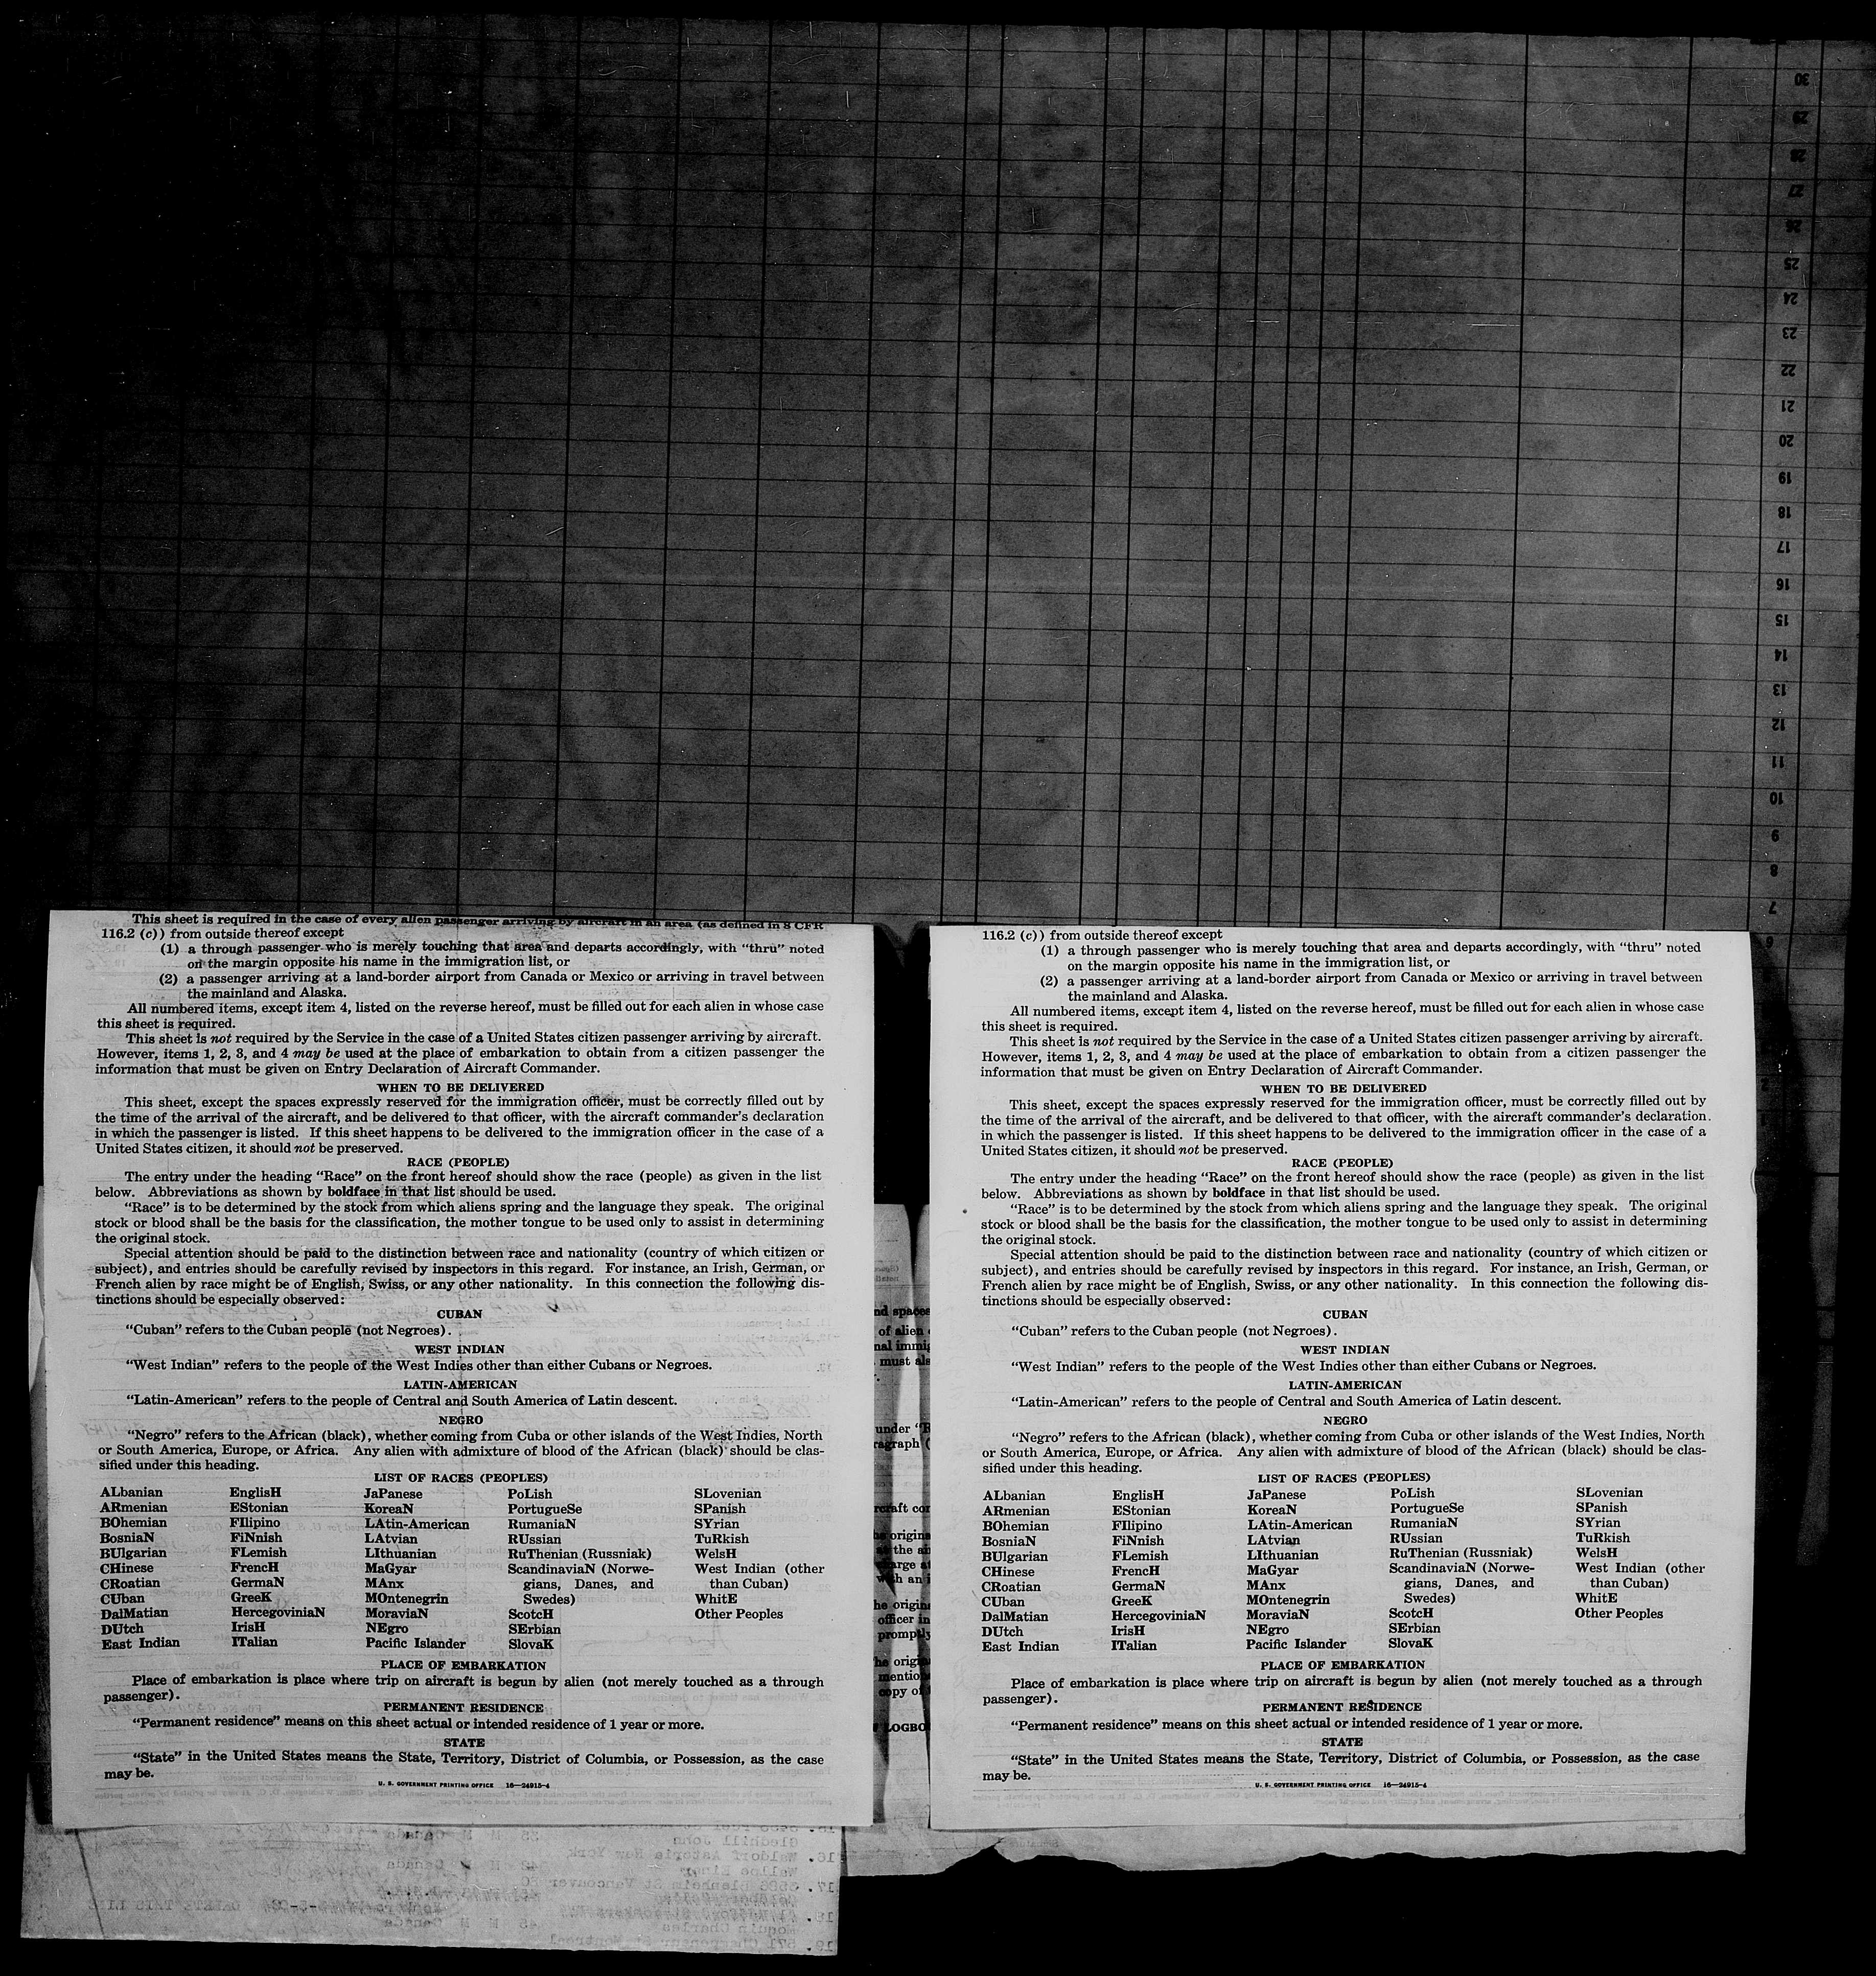 30
29
28
27
26
25
24
23
22
21
20
19
18
17
16
15
14
13
12
11
10
9
8
7
6
This sheet is required in the case of every alien passenger arriving by aircraft in an area (as defined in 8 CFR
116.2 (c)) from outside thereof except
(1) a through passenger who is merely touching that area and departs accordingly, with "thru" noted
on the margin opposite his name in the immigration list, or
(2) a passenger arriving at a land-border airport from Canada or Mexico or arriving in travel between
the mainland and Alaska.
All numbered items, except item 4, listed on the reverse hereof, must be filled out for each alien in whose case
this sheet is required.
This sheet is not required by the Service in the case of a United States citizen passenger arriving by aircraft.
However, items 1, 2, 3, and 4 may be used at the place of embarkation to obtain from a citizen passenger the
information that must be given on Entry Declaration of Aircraft Commander.
WHEN TO BE DELIVERED
This sheet, except the spaces expressly reserved for the immigration officer, must be correctly filled out by
the time of the arrival of the aircraft, and be delivered to that officer, with the aircraft commander's declaration
in which the passenger is listed. If this sheet happens to be delivered to the immigration officer in the case of a
United States citizen, it should not be preserved.
RACE (PEOPLE)
The entry under the heading "Race" on the front hereof should show the race (people) as given in the list
below. Abbreviations as shown by boldface in that list should be used.
"Race" is to be determined by the stock from which aliens spring and the language they speak. The original
stock or blood shall be the basis for the classification, the mother tongue to be used only to assist in determining
the original stock.
Special attention should be paid to the distinction between race and nationality (country of which citizen or
subject), and entries should be carefully revised by inspectors in this regard. For instance, an Irish, German, or
French alien by race might be of English, Swiss, or any other nationality. In this connection the following dis-
tinctions should be especially observed:
CUBAN
"Cuban" refers to the Cuban people (not Negroes).
WEST INDIAN
"West Indian" refers to the people of the West Indies other than either Cubans or Negroes.
LATIN-AMERICAN
"Latin-American" refers to the people of Central and South America of Latin descent.
NEGRO
"Negro" refers to the African (black), whether coming from Cuba or other islands of the West Indies, North
or South America, Europe, or Africa. Any alien with admixture of blood of the African (black) should be clas-
sified under this heading.
LIST OF RACES (PEOPLES)
ALbanian EnglisH JaPanese PoLish SLovenian
ARmenian EStonian KoreaN PortugueSe SPanish
BOhemian FIlipino LAtin-American RumaniaN SYrian
BosniaN FiNnish LAtvian RUssian TuRkish
BUlgarian FLemish LIthuanian RuThenian (Russniak) WelsH
CHinese FrencH MaGyar ScandinaviaN (Norwe- West Indian (other
CRoatian GermaN MAnx gians, Danes, and than Cuban)
CUban GreeK MOntenegrin Swedes) WhitE
DalMatian HercegoviniaN MoraviaN ScotcH Other Peoples
DUtch IrisH NEgro SErbian
East Indian ITalian Pacific Islander SlovaK
PLACE OF EMBARKATION
Place of embarkation is place where trip on aircraft is begun by alien (not merely touched as a through
passenger).
PERMANENT RESIDENCE
"Permanent residence" means on this sheet actual or intended residence of 1 year or more.
STATE
"State" in the United States means the State, Territory, District of Columbia, or Possession, as the case
may be.
U. S. GOVERNMENT PRINTING OFFICE 16—24915-4
nd spaces
of alien
nal immig
must als
under "R
ragraph (
rcraft con
he origina
t the ai
arge a
h an i
he origina
officer in
promptly
he origi
mentio
copy of
LOGBO
116.2 (c)) from outside thereof except
(1) a through passenger who is merely touching that area and departs accordingly, with "thru" noted
on the margin opposite his name in the immigration list, or
(2) a passenger arriving at a land-border airport from Canada or Mexico or arriving in travel between
the mainland and Alaska.
All numbered items, except item 4, listed on the reverse hereof, must be filled out for each alien in whose case
this sheet is required.
This sheet is not required by the Service in the case of a United States citizen passenger arriving by aircraft.
However, items 1, 2, 3, and 4 may be used at the place of embarkation to obtain from a citizen passenger the
information that must be given on Entry Declaration of Aircraft Commander.
WHEN TO BE DELIVERED
This sheet, except the spaces expressly reserved for the immigration officer, must be correctly filled out by
the time of the arrival of the aircraft, and be delivered to that officer, with the aircraft commander's declaration
in which the passenger is listed. If this sheet happens to be delivered to the immigration officer in the case of a
United States citizen, it should not be preserved.
RACE (PEOPLE)
The entry under the heading "Race" on the front hereof should show the race (people) as given in the list
below. Abbreviations as shown by boldface in that list should be used.
"Race" is to be determined by the stock from which aliens spring and the language they speak. The original
stock or blood shall be the basis for the classification, the mother tongue to be used only to assist in determining
the original stock.
Special attention should be paid to the distinction between race and nationality (country of which citizen or
subject), and entries should be carefully revised by inspectors in this regard. For instance, an Irish, German, or
French alien by race might be of English, Swiss, or any other nationality. In this connection the following dis-
tinctions should be especially observed:
CUBAN
"Cuban" refers to the Cuban people (not Negroes).
WEST INDIAN
"West Indian" refers to the people of the West Indies other than either Cubans or Negroes.
LATIN-AMERICAN
"Latin-American" refers to the people of Central and South America of Latin descent.
NEGRO
"Negro" refers to the African (black), whether coming from Cuba or other islands of the West Indies, North
or South America, Europe, or Africa. Any alien with admixture of blood of the African (black) should be clas-
sified under this heading.
LIST OF RACES (PEOPLES)
ALbanian EnglisH JaPanese PoLish SLovenian
ARmenian EStonian KoreaN PortugueSe SPanish
BOhemian FIlipino LAtin-American RumaniaN SYrian
BosniaN FiNnish LAtvian RUssian TuRkish
BUlgarian FLemish LIthuanian RuThenian (Russniak) WelsH
CHinese FrencH MaGyar ScandinaviaN (Norwe- West Indian (other
CRoatian GermaN MAnx gians, Danes, and than Cuban)
CUban GreeK MOntenegrin Swedes) WhitE
DalMatian HercegoviniaN MoraviaN ScotcH Other Peoples
DUtch IrisH NEgro SErbian
East Indian ITalian Pacific Islander SlovaK
PLACE OF EMBARKATION
Place of embarkation is place where trip on aircraft is begun by alien (not merely touched as a through
passenger).
PERMANENT RESIDENCE
"Permanent residence" means on this sheet actual or intended residence of 1 year or more.
STATE
"State" in the United States means the State, Territory, District of Columbia, or Possession, as the case
may be.
U. S. GOVERNMENT PRINTING OFFICE 16—24915-4
Gledhill John
16. Waldorf Astoria New York
17. Blenheim St Vancouver
DELETE THIS LINE
18.
48 M M Canada
Moquin Charles
19. 571
Montreal